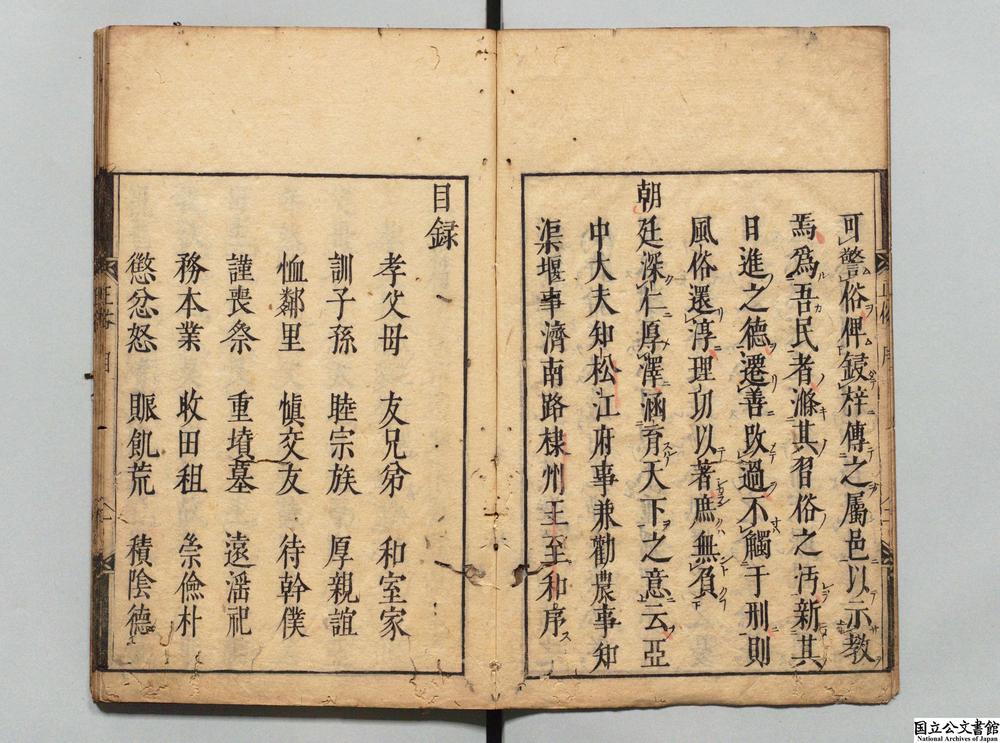 可警俗俾鋟梓傳之属邑以示教
焉爲吾民者滌其習俗之汚新其
日進之德遷善改過不觸于刑則
風俗還淳理功以著庶無負
朝廷深仁厚澤涵育天下之意云亞
中大夫知松江府事兼勸農事知
渠堰事濟南路棣州王至和序
目録
孝父母 友兄弟 和室家
訓子孫 睦宗族 厚親誼
恤鄰里 慎交友 待幹僕
謹喪祭 重墳墓 遠滛祀
務本業 收田租 崇儉朴
懲忿怒 賑飢荒 積陰德
国立公文書館
National Archives of Japan